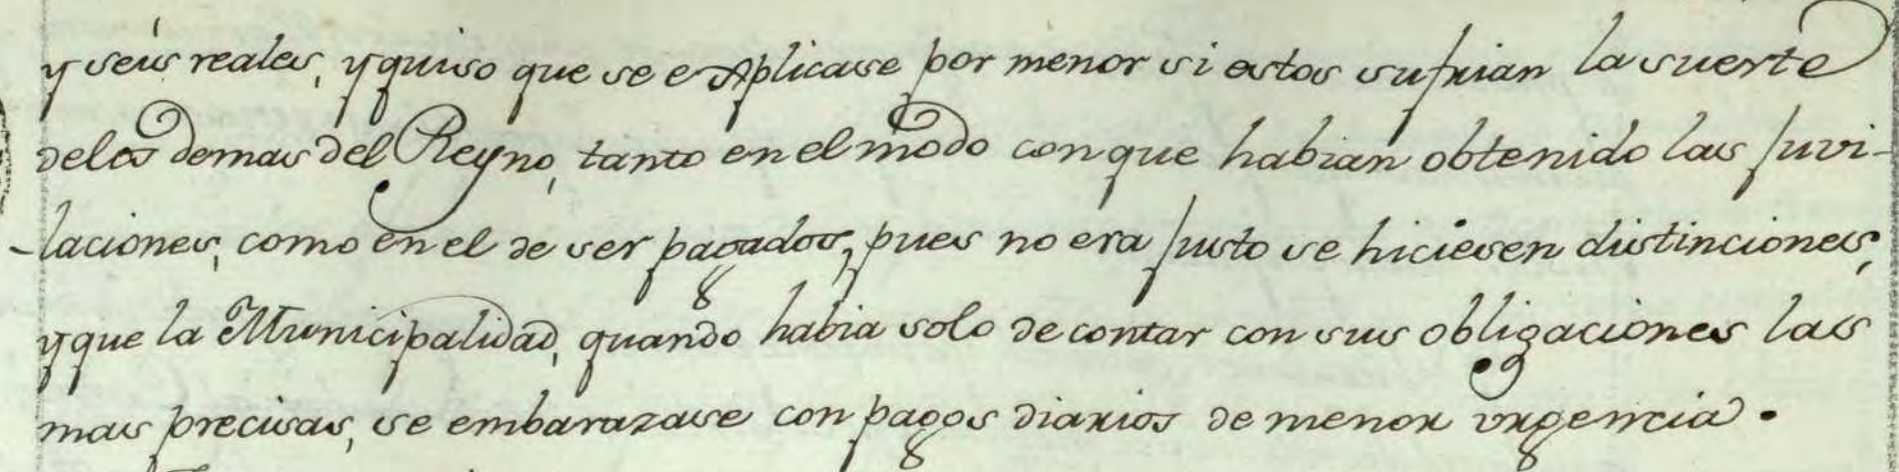 y seis reales, y quiso que se explicase por menor si estos sufrian la suerte
de los demas del Reyno, tanto en el modo con que habian obtenido las juvi-
-laciones, como en el de ser pagados, pues no era justo se hiciesen distinciones,
y que la Municipalidad, quando habia solo de contar con sus obligaciones las
mas precisas, se embarazase con pagos diarios de menor urgencia.